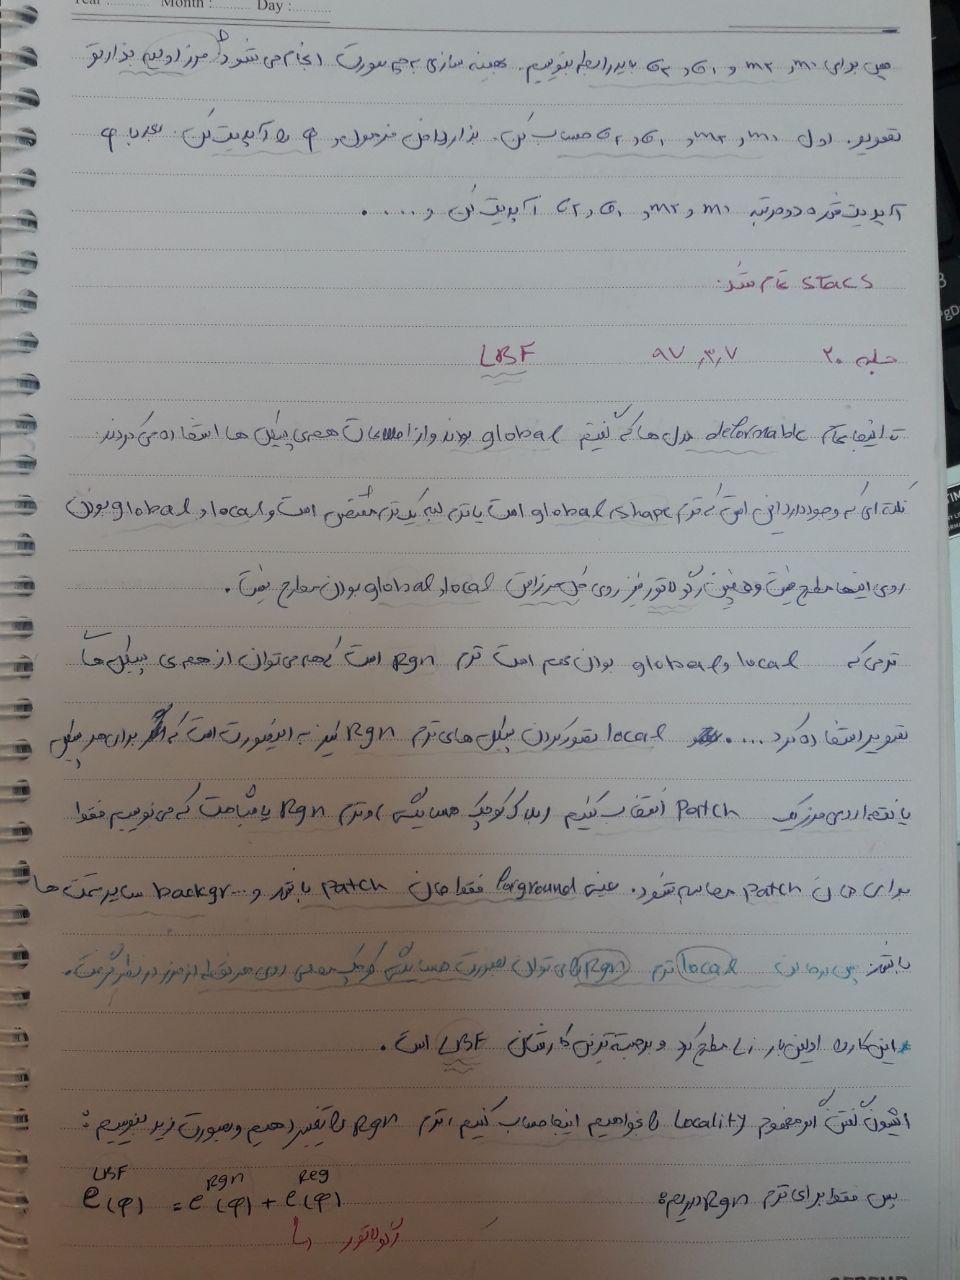 Year : Month : Day :
پس برای m۱ و m۲ و σ۱ و σ۲ باید رابطه بنویسیم. بهینه سازی به چه صورت انجام می شود؟ مرز اولیه بذار تو
تصویر. اول m۱ و m۲ و σ۱ و σ۲ حساب کن. بذار داخل فرمول و φ را آپدیت کن. بعد با φ
آپدیت شده دو مرتبه m۱ و m۲ و σ۱ و σ۲ آپدیت کن و ....
stacs تمام شد.
جلسه ۲۰ ۹۷,۳,۷ LBF
تا اینجا تمام deformable مدل ها که گفتیم global بودند و از اطلاعات همه ی پیکسل ها استفاده می کردند.
نکته ای که وجود دارد این است که ترم shape، global است یا ترم لبه یک ترم مشخص است و local و global بودن
روی اینها مطرح نیست و همچنین رگولاتور نیز روی کل مرز است local و global بودن مطرح نیست.
ترمی که local و global بودن مهم است ترم Rgn است که هم می توان از همه ی پیکسل های
تصویر استفاده کرد .... local تصور کردن پیکسل های ترم Rgn نیز به اینصورت است که برای هر پیکسل
یا نقطه از روی مرز یک Patch انتخاب کنیم (بلاک کوچک همسایگی) و ترم Rgn یا شباهت که می نویسیم فقط
برای همان patch محاسبه شود. یعنی forground فقط همان patch باشد و backgr... سایر قسمت ها
باشد. پس برای local ترم Rgn می توان بصورت همسایگی کوچک محلی روی هر نقطه از مرز در نظر گرفت.
* این کار را اولین بار لی مطرح کرد و برجسته ترین کارشان LBF است.
ایشون گفتن اگر مفهوم locality را بخواهیم اینجا حساب کنیم، ترم Rgn را تغییر دهیم و بصورت زیر بنویسیم:
پس فقط برای ترم Rgn داریم: e^LBF(φ) = e^Rgn(φ) + e^Reg(φ)
رگولاتور